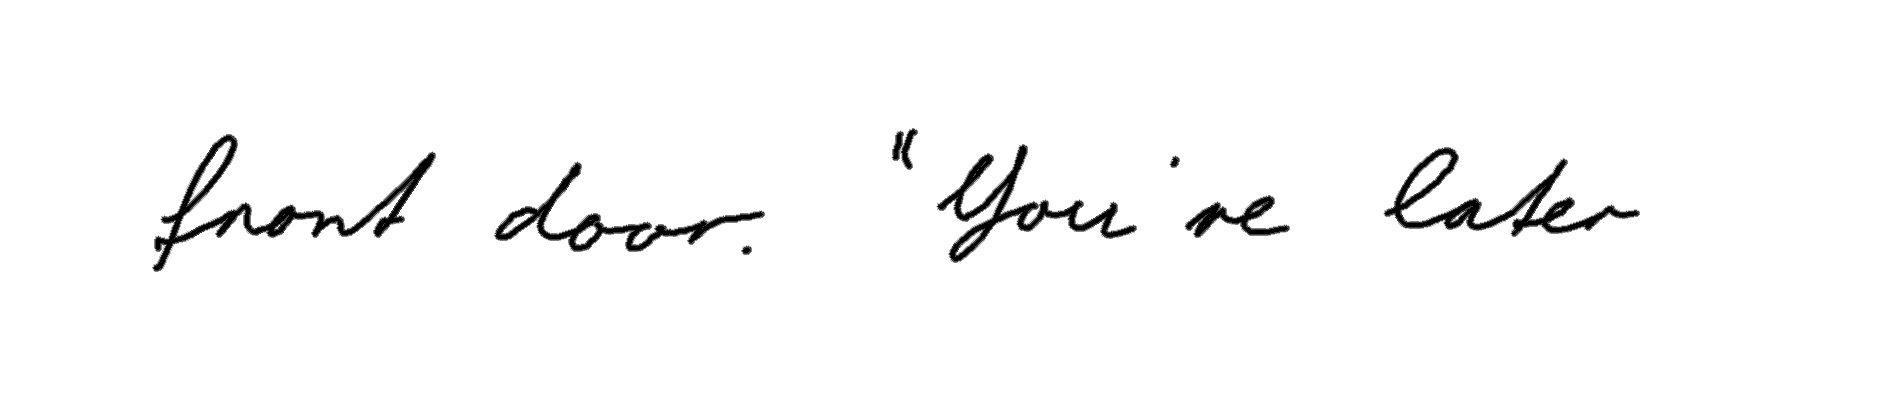 front door. "You're later